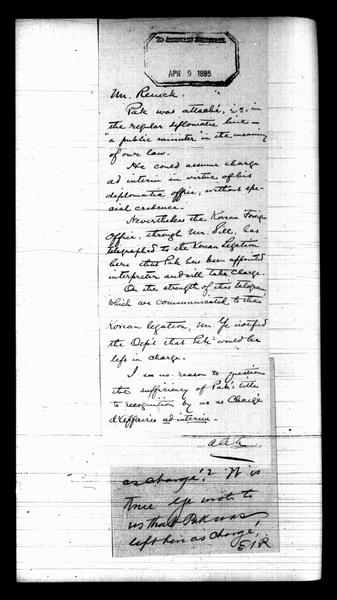 2D ASSISTANT SECRETARY
APR 9 1895
Mr. Renick.
Pak was attaché, i.e., in
the regular diplomatic line —
"a public minister" in the meaning
of our law.
He could assume charge
ad interim in virtue of his
diplomatic office, without spe-
cial credence.
Nevertheless the Korean Foreign
Office, through Mr. Sill, has
telegraphed to the Korean legation
here that Pak has been appointed
interpreter and will take charge.
On the strength of this telegram,
which we communicated to the
Korean legation, Mr. Ye notified
the Dep't that Pak would be
left in charge.
I see no reason to question
the sufficiency of Pak's title
to recognition by us as Chargé
d'Affaires ad interim.
A.A.A.
as chargé? It is
true Ye wrote to
us that Pak was
left here as Chargé!
E I R